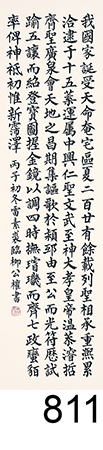 我國家誕受天命奄宅區夏二百廿有餘載列聖相承重熙累
洽逮于十五葉運属中興仁聖文武至神大孝皇帝溫恭濬哲
齊聖廣泉會天地之昌期集謳歌於潁邸由至公而光符歷試
踰五讓而紹登寶圖握金鏡以調四時撫璿璣而齊七政蠻貊
率俾神祗初惟新霈澤 丙子初冬 臨柳公權書
811